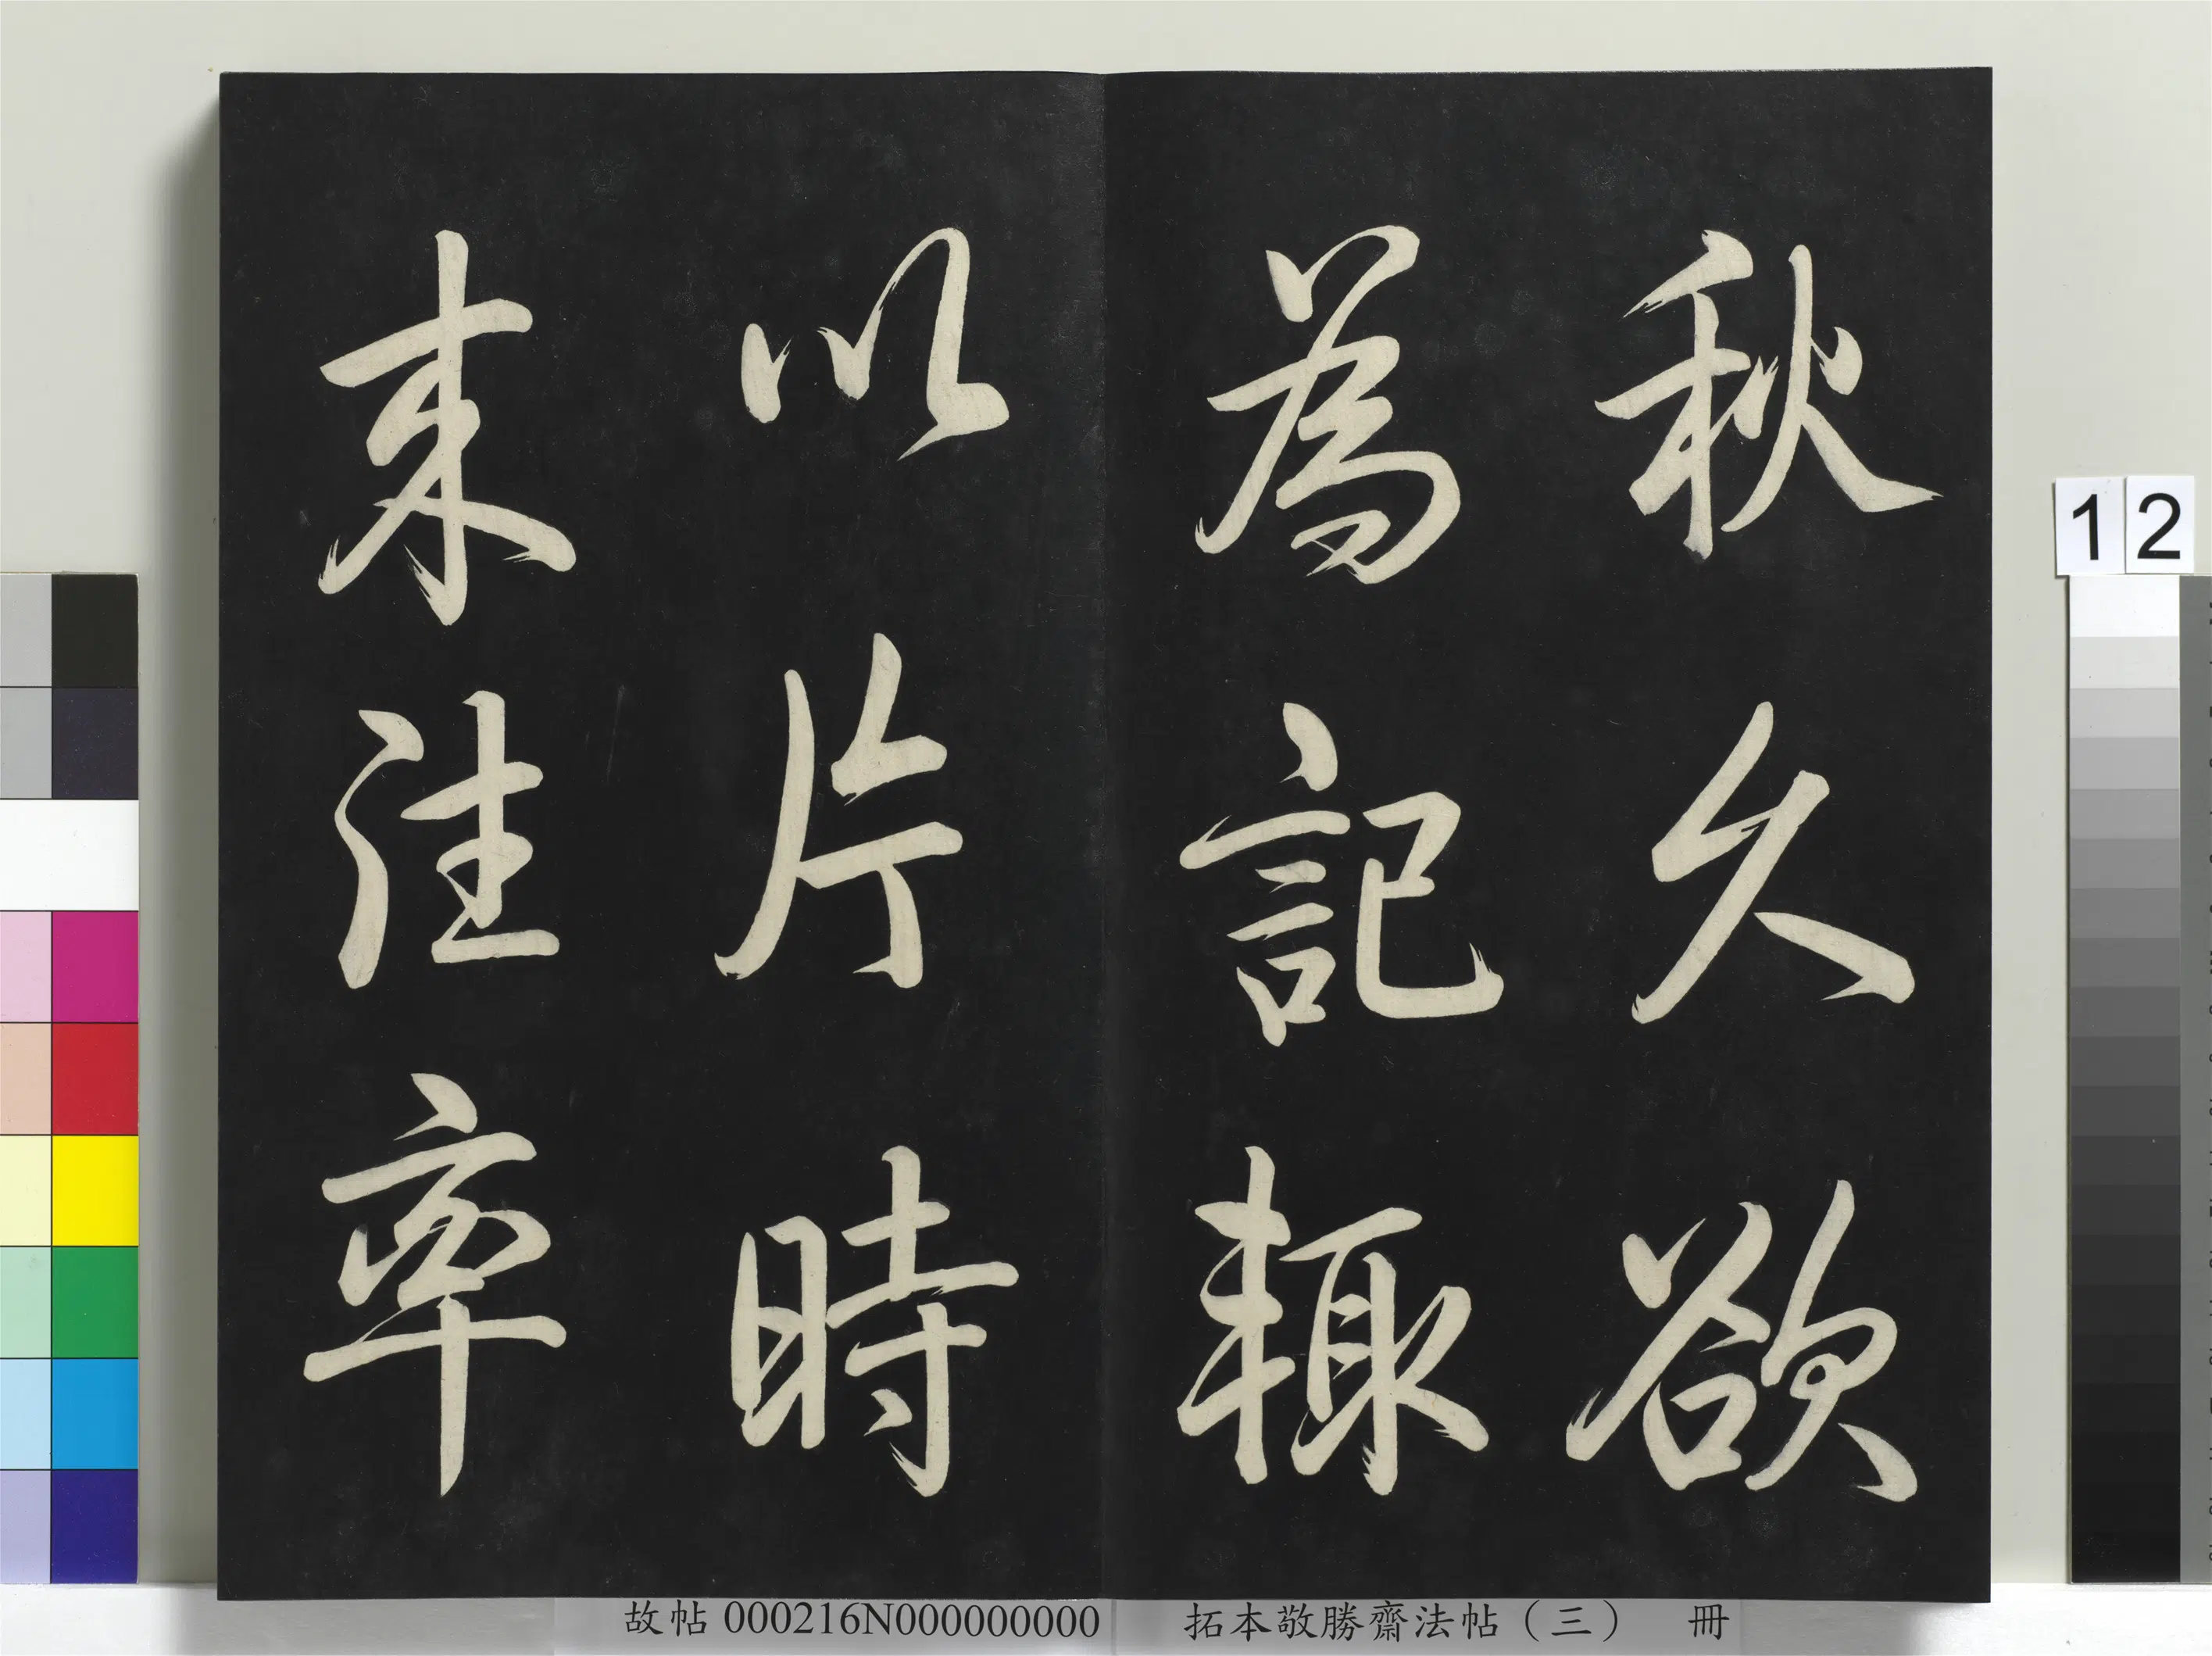 秋久欲
為記輙
以片時
未注率
12
故帖 000216N000000000 拓本敬勝齋法帖（三） 冊